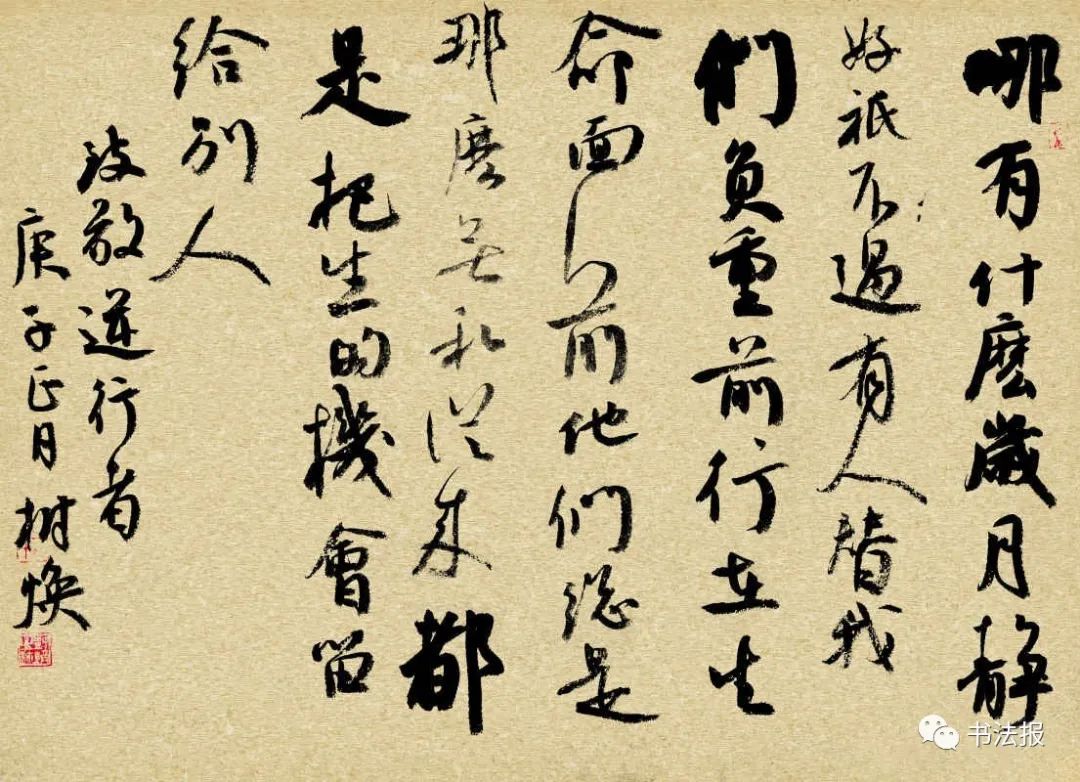 哪有什麼歲月静
好祇不過有人替我
們負重前行在生
命面前他们總是
那麽无私從來都
是把生的機會留
给别人
致敬逆行者
庚子正月樹焕
书法报